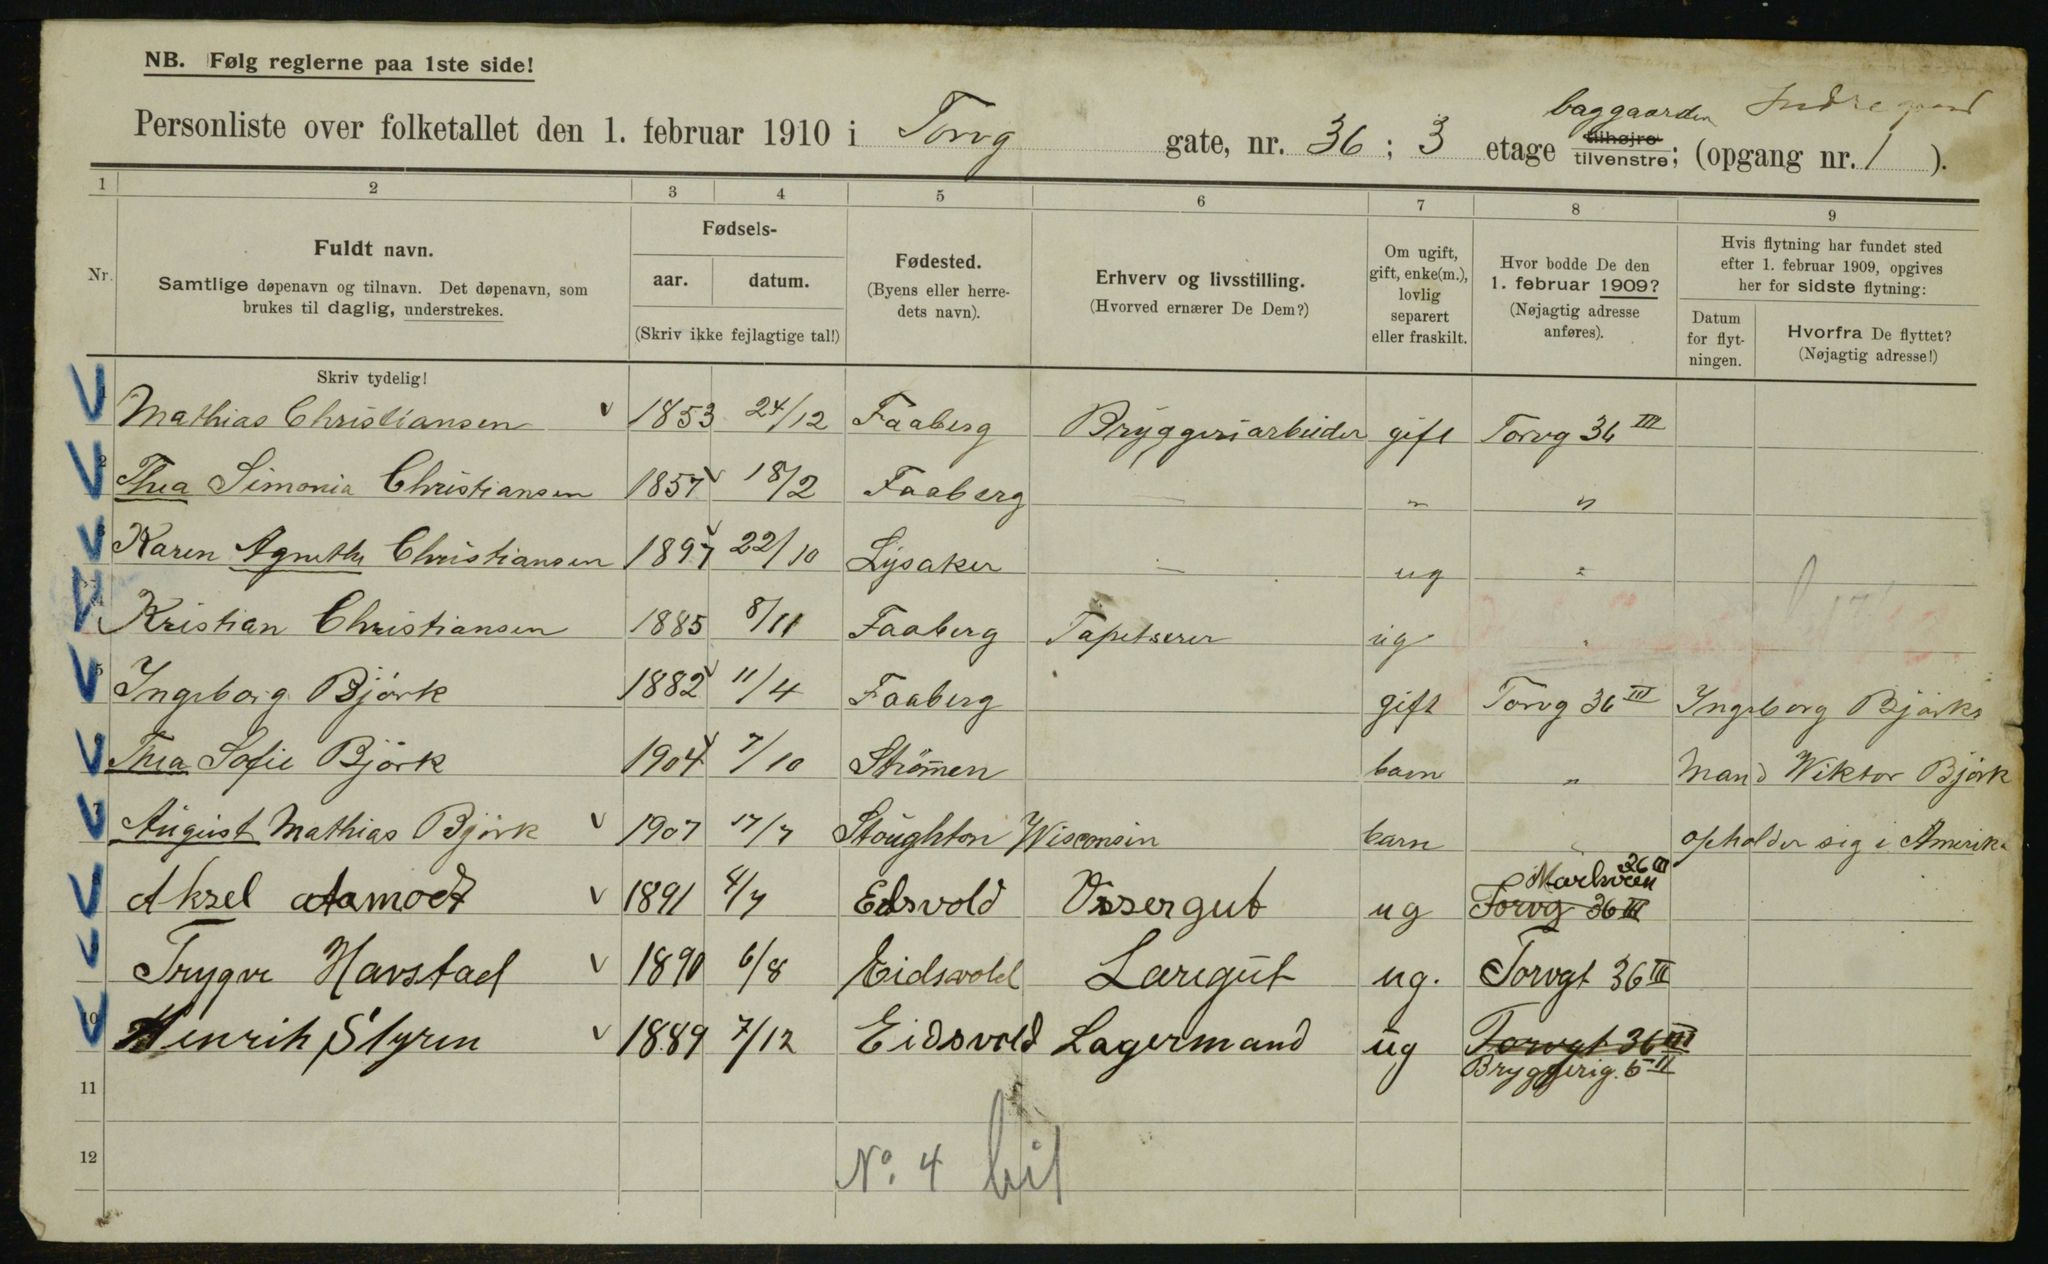 NB. Følg reglerne paa 1ste side!
baggaarden
Personliste over folketallet den 1. februar 1910 i Torvg gate, nr. 36; 3 etage tilhøjre tilvenstre; (opgang nr. 1).
1 2 3 4 5 6 7 8 9
Nr.
Fuldt navn.
Samtlige døpenavn og tilnavn. Det døpenavn, som
brukes til daglig, understrekes.
Skriv tydelig!
Fødsels-
aar. datum.
(Skriv ikke fejlagtige tal!)
Fødested.
(Byens eller herre-
dets navn).
Erhverv og livsstilling.
(Hvorved ernærer De Dem?)
Om ugift,
gift, enke(m.),
lovlig
separert
eller fraskilt.
Hvor bodde De den
1. februar 1909?
(Nøjagtig adresse
anføres).
Hvis flytning har fundet sted
efter 1. februar 1909, opgives
her for sidste flytning:
Datum
for flyt-
ningen.
Hvorfra De flyttet?
(Nøjagtig adresse!)
1 Mathias Christiansen v 1853 24/12 Faaberg Bryggeriarbeider gift Torvg 36 III
2 Thea Simonia Christiansen 1857 18/2 Faaberg — " "
3 Karen Agnethe Christiansen 1897 22/10 Lysaker — ug "
4 Kristian Christiansen 1885 8/11 Faaberg Tapetserer ug "
5 Ingeborg Björk 1882 11/4 Faaberg gift Torvg 36 III Ingeborg Björks
6 Thea Sofie Björk 1904 7/10 Strömmen barn " Mand Wiktor Björk
7 August Mathias Björk v 1907 17/7 Stoughton Wisconsin barn " opholder sig i Amerika
36 III
8 Aksel Aamodt v 1891 4/7 Edsvold Vissergut ug Torvg 36 III
9 Trygve Havstad v 1890 6/8 Eidsvold Læregut ug. Torvgt 36 III
10 Henrik Styren v 1889 7/12 Eidsvold Lagermand ug Torvgt 36 III
Bryggerig. 6 II
11
12
No. 4 bil